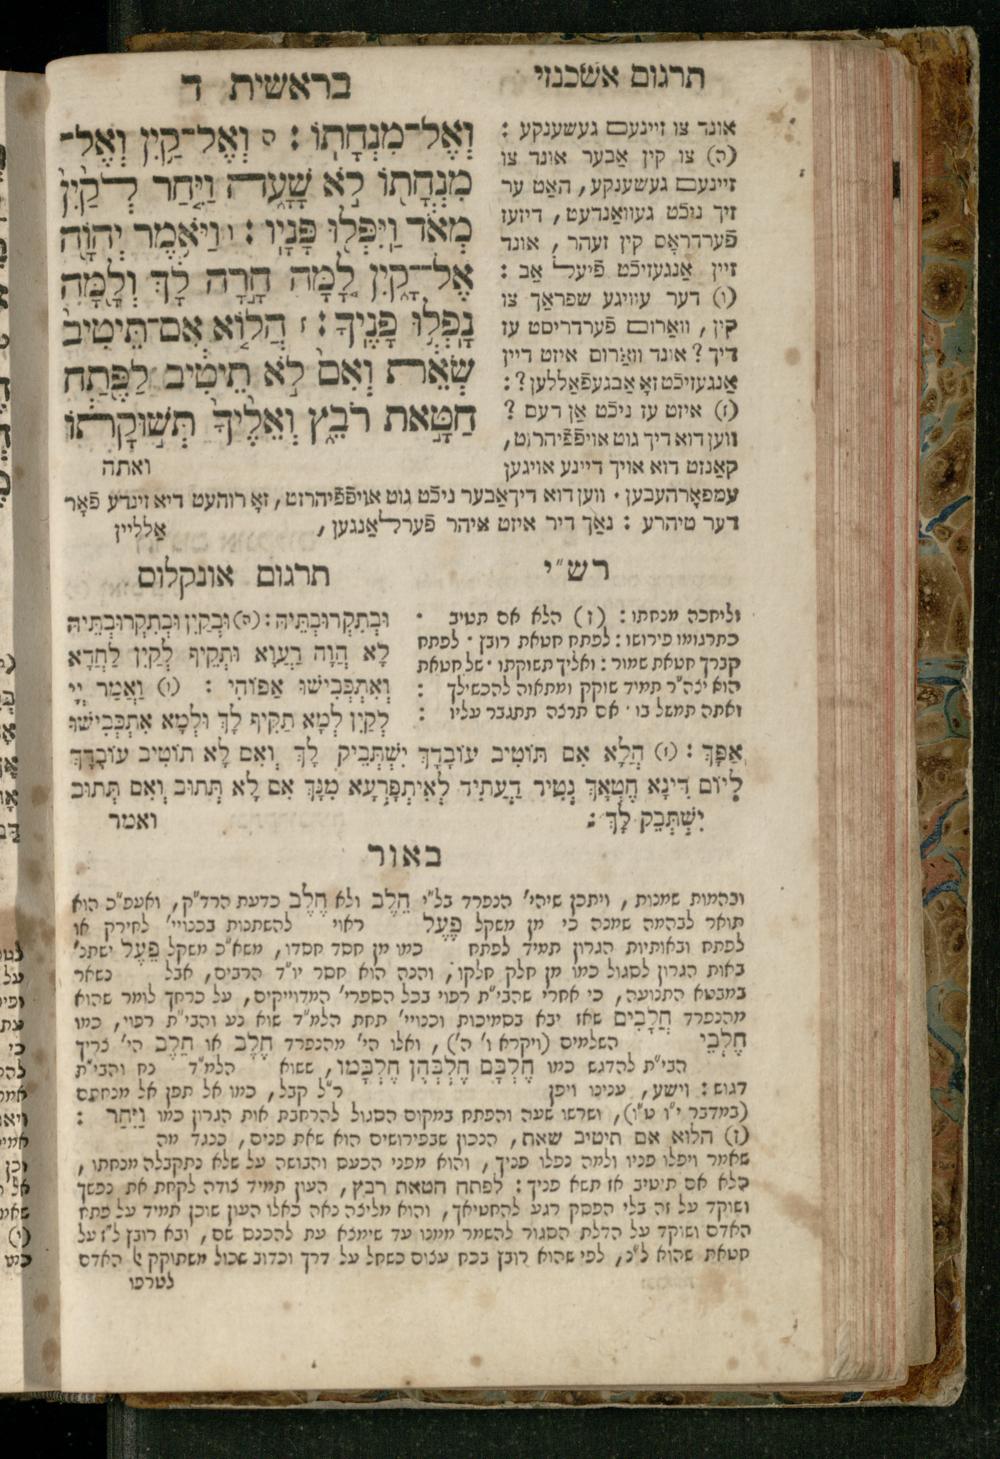 בראשית ד
תרגום אשכנזי
וְאֶל־מִנְחָתֽוֹ׃ ה וְאֶל־קַ֥יִן וְאֶל־
מִנְחָת֖וֹ לֹ֣א שָׁעָ֑ה וַיִּ֤חַר לְקַ֙יִן֙
מְאֹ֔ד וַֽיִּפְּל֖וּ פָּנָֽיו׃ ו וַיֹּ֥אמֶר יְהוָֹ֖ה
אֶל־קָ֑יִן לָ֚מָּה חָ֣רָה לָ֔ךְ וְלָ֖מָּה
נָפְל֥וּ פָנֶֽיךָ׃ ז הֲל֤וֹא אִם־תֵּיטִיב֙
שְׂאֵ֔ת וְאִם֙ לֹ֣א תֵיטִ֔יב לַפֶּ֖תַח
חַטָּ֣את רֹבֵ֑ץ וְאֵלֶ֙יךָ֙ תְּשׁ֣וּקָת֔וֹ
ואתה
אונד צו זיינעם געשענקע :
(ה) צו קין אַבער אונד צו
זיינעם געשענקע, האַט ער
זיך ניכֿט געוואַנדעט, דיזעז
פֿערדראָס קין זעהר, אונד
זיין אַנגעזיכֿט פֿיעל אַב :
(ו) דער עוויגע שפראַך צו
קין, וואַרום פֿערדריסט עז
דיך? אונד וואַרום איזט דיין
אַנגעזיכֿט זאָ אַבגעפֿאַללען? :
(ז) איזט עז ניכֿט אַן דעם ?
ווען דוא דיך גוט אויפֿפֿיהרזט,
קאַנזט דוא אויך דיינע אויגען
עמפאָרהעבען · ווען דוא דיך אַבער ניכֿט גוט אויפֿפֿיהרזט, זאָ רוהעט דיא זינדע פֿאָר
דער טיהרע : נאַך דיר איזט איהר פֿערלאַנגען, אַלליין
רש״י
וליחכה מנחתו : (ז) הלא אם תטיב ·
כתרגומו פירושו : לפתח חטאת רובץ · לפתח
קברך חטאת שמור : ואליך תשוקתו · של חטאת
הוא יצה״ר תמיד שוקק ומתאוה להכשילך :
ואתה תמשל בו · אם תרצה תתגבר עליו :
תרגום אונקלוס
וּבְתִקְרוּבְתֵּיהּ : (ה) וּבְקַיִן וּבְתִקְרוּבְתֵּיהּ
לָא הֲוָה רַעֲוָא וּתְקֵיף לְקַיִן לַחֲדָא
וְאִתְכְּבִישׁוּ אַפּוֹהִי : (ו) וַאֲמַר יְיָ
לְקַיִן לְמָא תַקִּיף לָךְ וּלְמָא אִתְכְּבִישׁוּ
אַפָּךְ : (ז) הֲלָא אִם תּוֹטִיב עוֹבָדָךְ יִשְׁתְּבֵיק לָךְ וְאִם לָא תוֹטִיב עוֹבָדָךְ
לְיוֹם דִּינָא חֶטְאָךְ נְטִיר דַּעֲתִיד לְאִיתְפָּרְעָא מִנָּךְ אִם לָא תְּתוּב וְאִם תְּתוּב
יִשְׁתְּבֵק לָךְ : ואמר
באור
ובהמות שמנות, ויתכן שיהי׳ הנפרד בל״י חֵלֶב ולא חֶלֶב כדעת הרד״ק, ואעפ״כ הוא
תואר לבהמה שמנה כי מן משקל פֶעֶל ראוי להשתנות בכנויי׳ לחירק או
לפתח ובאותיות הגרון תמיד לפתח כמו מן חסד חסדו, משא״כ משקל פֵעֶל ישתנ׳
באות הגרון לסגול כמו מן חלק חלקו, והנה הוא חסר יו״ד הרבים, אבל נשאר
במבטא התנועה, כי אחרי שהבי״ת רפוי בכל הספרי׳ המדוייקים, על כרחך לומר שהוא
מהנפרד חֲלָבִים שאז יבא בסמיכות וכנויי׳ תחת הלמ״ד שוא נע והבי״ת רפוי, כמו
חֶלְבֵי השלמים (ויקרא ו׳ ה׳), ואלו הי׳ מהנפרד חֶלֶב או חֵלֶב הי׳ צריך
הבי״ת להדגש כמו חֶלְבָּם חֶלְבְּהֶן חֶלְבָּמו, ששוא הלמ״ד נח והבי״ת
דגוש : וישע, ענינו ויפן ר״ל קבל, כמו אל תפן אל מנחתם
(במדבר י״ו ט״ו), ושרשו שעה והפתח במקום הסגול להרחבת אות הגרון כמו וַיִּחַר :
(ז) הלוא אם תיטיב שאת, הנכון שבפירושים הוא שאת פנים, כנגד מה
שאמר ויפלו פניו ולמה נפלו פניך, והוא מפני הכעס והבושה על שלא נתקבלה מנחתו,
הלא אם תיטיב אז תשא פניך : לפתח חטאת רבץ, העון תמיד צודה לקחת את נפשך
ושוקד על זה בלי הפסק רגע להחטיאך, והוא מליצה נאה כאלו העון שוכן תמיד על פתח
האדם ושוקד על הדלת הסגור להשמר ממנו עד שימצא עת להכנס שם, ובא רובץ ל״ז על
חטאת שהוא ל״נ, לפי שהוא רובץ בכח עצום כשחל על דרך וכדוב שכול משתוקק ל האדם
לטרפו